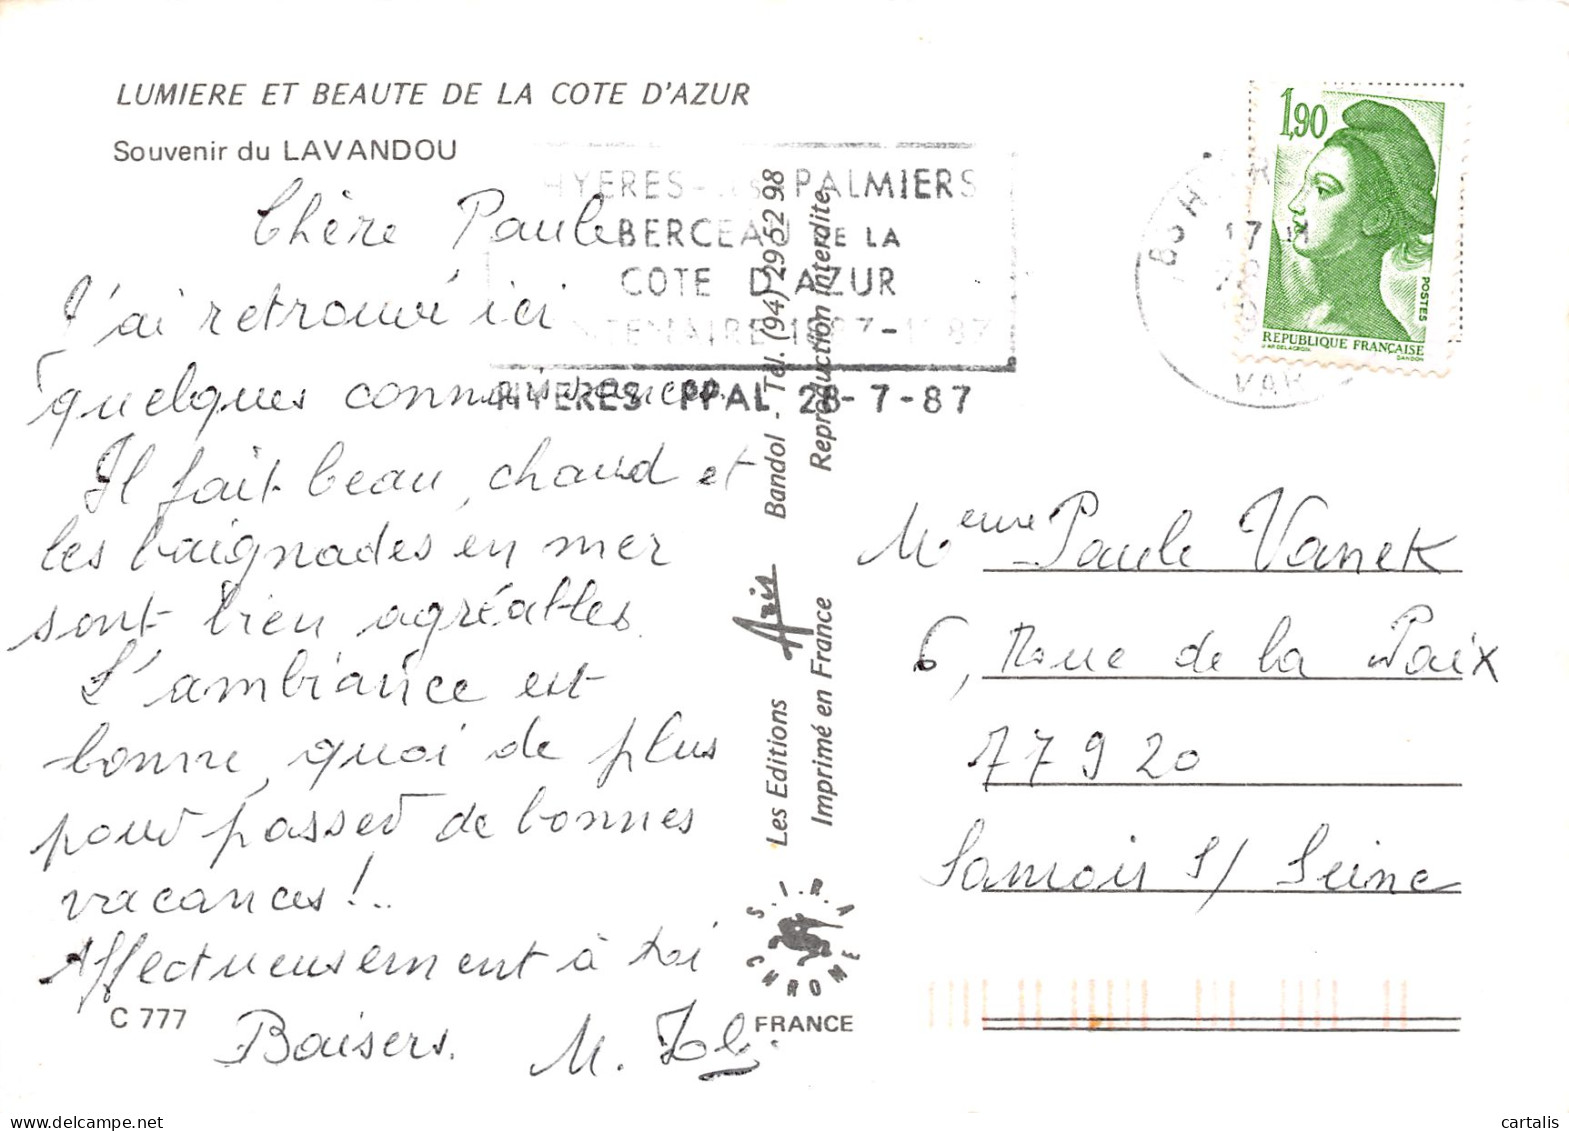 LUMIERE ET BEAUTE DE LA COTE D'AZUR
Souvenir du LAVANDOU
HYERES- PALMIERS
BERCEAU DE LA
COTE D'AZUR
HYERES PPAL 28-7-87
VAR
1,90
POSTES
REPUBLIQUE FRANÇAISE
D'AP. DELACROIX GANDON
Chère Paule
J'ai retrouvé ici
quelques connaissances.
Il fait beau, chaud et
les baignades en mer
sont bien agréables.
L'ambiance est
bonne, quoi de plus
pour passer de bonnes
vacances !..
Affectueusement à toi
Baisers. M.
C 777
Les Editions Aris Bandol - Tél. (94) 29 52 98
Imprimé en France Reproduction Interdite
S.I.R.A
CHROME
FRANCE
Meme Paule Vanek
6, Rue de la Paix
77920
Samois S/ Seine
cartalis.com